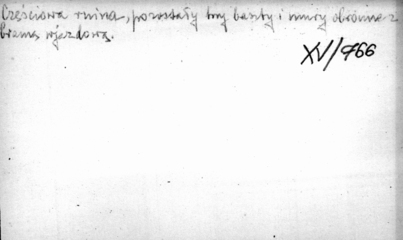 Częściowa ruina, pozostały trzy baszty i mury obronne z
bramą wjazdową.
XV/966